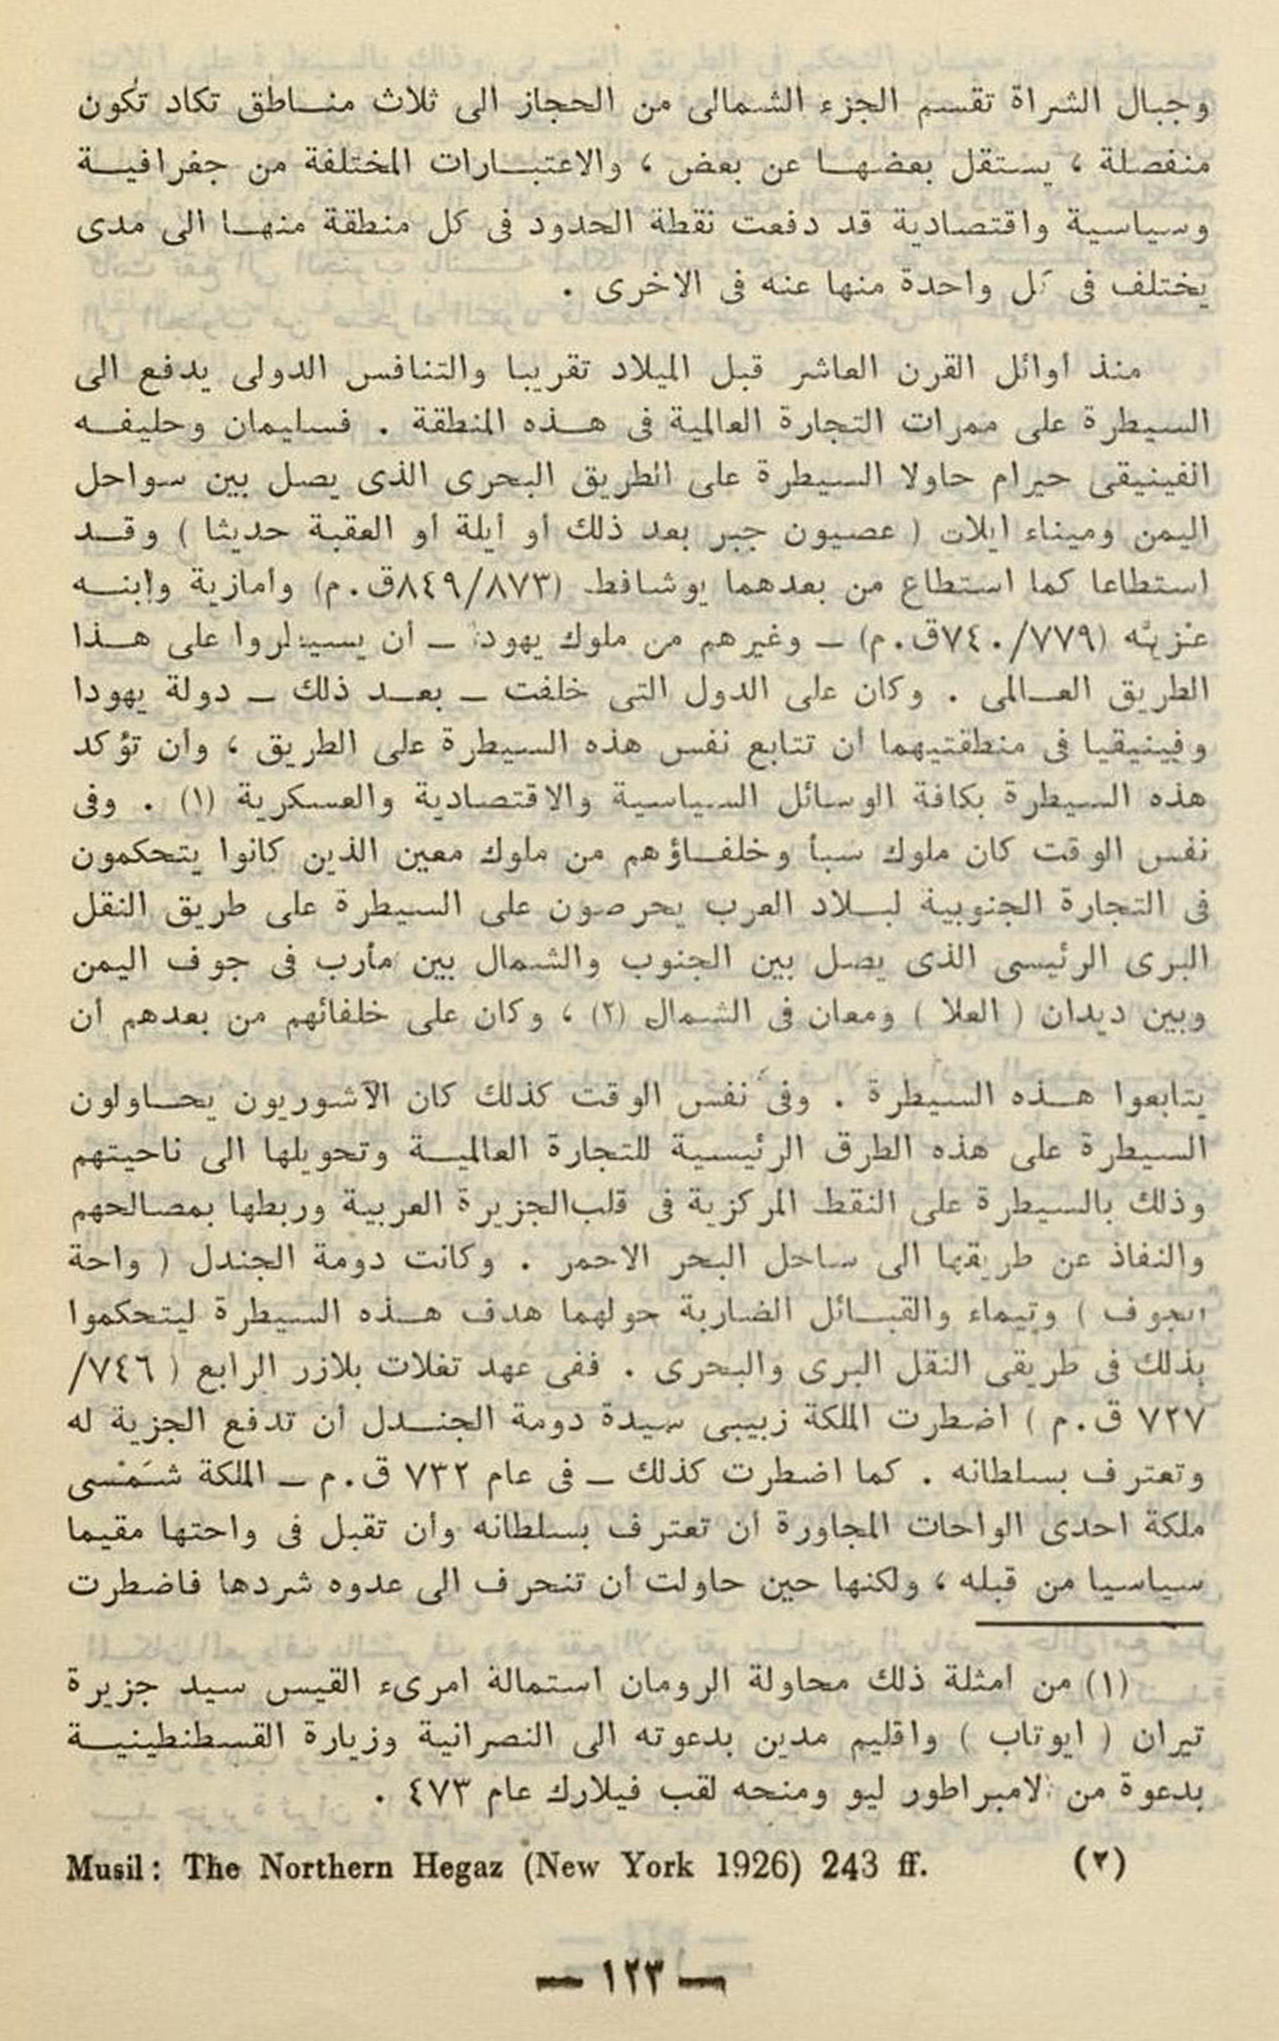 وجبال الشراة تقسم الجزء الشمالى من الحجاز الى ثلاث مناطق تكاد تكون
منفصلة ، يستقل بعضها عن بعض ، والاعتبارات المختلفة من جغرافية
وسياسية واقتصادية قد دفعت نقطة الحدود فى كل منطقة منها الى مدى
يختلف فى كل واحدة منها عنه فى الاخرى .
منذ أوائل القرن العاشر قبل الميلاد تقريبا والتنافس الدولى يدفع الى
السيطرة على ممرات التجارة العالمية فى هذه المنطقة . فسليمان وحليفه
الفينيقى حيرام حاولا السيطرة على الطريق البحرى الذى يصل بين سواحل
اليمن وميناء ايلات ( عصيون جبر بعد ذلك أو أيلة أو العقبة حديثا ) وقد
استطاعا كما استطاع من بعدهما يوشافط (٨٤٩/٨٧٣ق.م) وأمازية وإبنه
عزيه (٧٤٠/٧٧٩ق.م) ــ وغيرهم من ملوك يهودا ــ أن يسيطروا على هذا
الطريق العالمى . وكان على الدول التى خلفت ــ بعد ذلك ــ دولة يهودا
وفينيقيا فى منطقتيهما أن تتابع نفس هذه السيطرة على الطريق ، وأن تؤكد
هذه السيطرة بكافة الوسائل السياسية والاقتصادية والعسكرية (١) . وفى
نفس الوقت كان ملوك سبأ وخلفاؤهم من ملوك معين الذين كانوا يتحكمون
فى التجارة الجنوبية لبلاد العرب يحرصون على السيطرة على طريق النقل
البرى الرئيسى الذى يصل بين الجنوب والشمال بين مأرب فى جوف اليمن
وبين ديدان ( العلا ) ومعان فى الشمال (٢) ، وكان على خلفائهم من بعدهم أن
يتابعوا هذه السيطرة . وفى نفس الوقت كذلك كان الآشوريون يحاولون
السيطرة على هذه الطرق الرئيسية للتجارة العالمية وتحويلها الى ناحيتهم
وذلك بالسيطرة على النقط المركزية فى قلب الجزيرة العربية وربطها بمصالحهم
والنفاذ عن طريقها الى ساحل البحر الاحمر . وكانت دومة الجندل ( واحة
الجوف ) وتيماء والقبائل الضاربة حولهما هدف هذه السيطرة ليتحكموا
بذلك فى طريقى النقل البرى والبحرى . ففى عهد تغلات بلازر الرابع ( ٧٤٦/
٧٢٧ ق.م ) اضطرت الملكة زبيبى سيدة دومة الجندل أن تدفع الجزية له
وتعترف بسلطانه . كما اضطرت كذلك ــ فى عام ٧٣٢ ق.م ــ الملكة شَمْسى
ملكة احدى الواحات المجاورة أن تعترف بسلطانه وأن تقبل فى واحتها مقيما
سياسيا من قبله ، ولكنها حين حاولت أن تنحرف الى عدوه شردها فاضطرت
(١) من أمثلة ذلك محاولة الرومان استمالة امرىء القيس سيد جزيرة
تيران ( ايوتاب ) واقليم مدين بدعوته الى النصرانية وزيارة القسطنطينية
بدعوة من الامبراطور ليو ومنحه لقب فيلارك عام ٤٧٣ .
(٢) Musil: The Northern Hegaz (New York 1926) 243 ff.
— ١٢٣ —